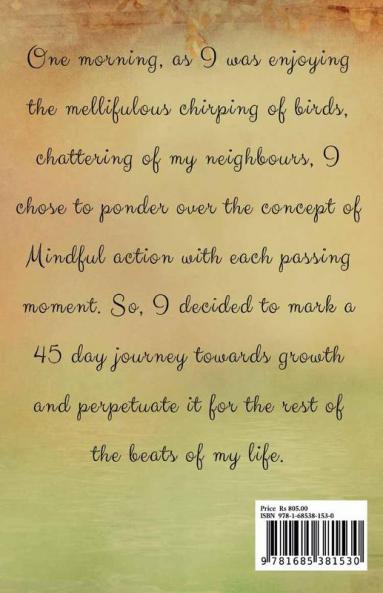 One morning, as I was enjoying
the mellifulous chirping of birds,
chattering of my neighbours, I
chose to ponder over the concept of
Mindful action with each passing
moment. So, I decided to mark a
45 day journey towards growth
and perpetuate it for the rest of
the beats of my life.
Price Rs 805.00
ISBN 978-1-68538-153-0
9 781685 381530